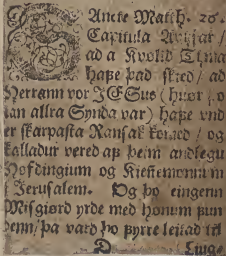 SAncte Matth. 26.
Capitula
ad a Kvølld Tijma
hafe þad skied / ad
HErrann vor JESus ( huør
ran allra Synda var) hafe vnd
er skarpasta Ransak komed / og
kalladur vered af þeim andlegu
Høfdingium og Kiennemønnum
i Jerusalem. Og þo eingenn
Misgiørd yrde med honum fun
denn / þa vard þo fyrre leitad til